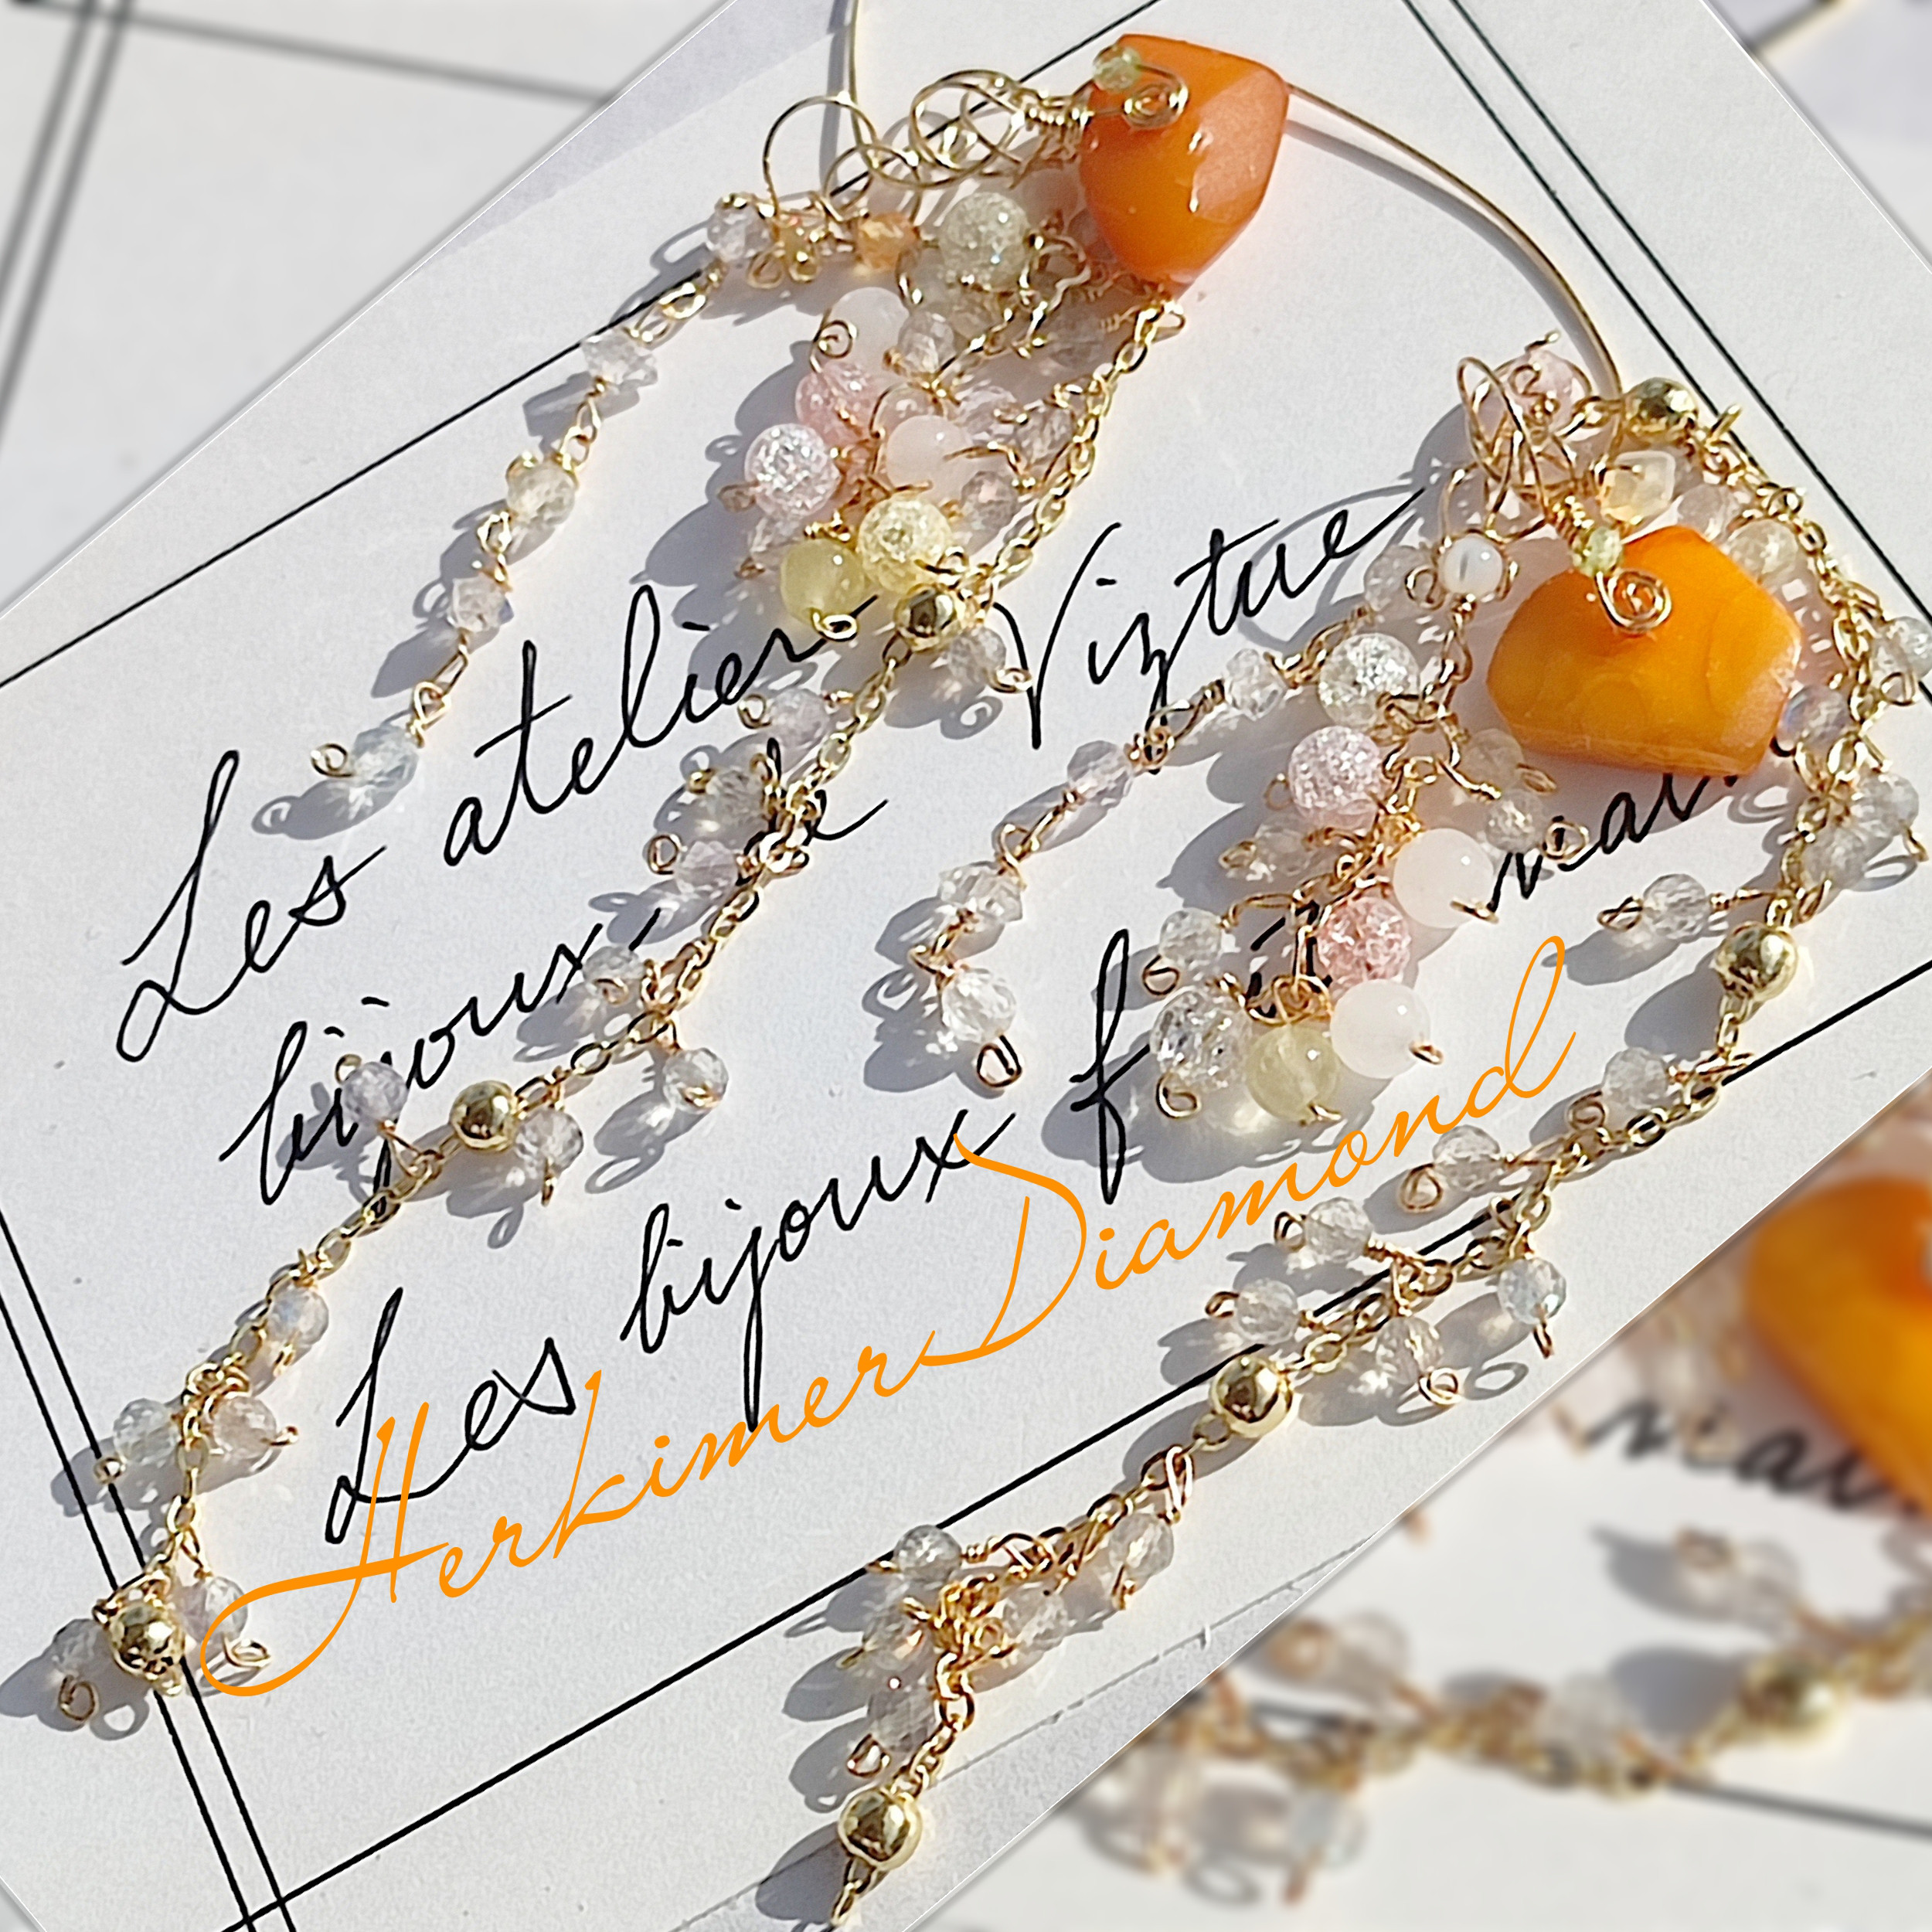 Les atelier Viztue
bijoux
Les bijoux f main
Herkimer Diamond
mai